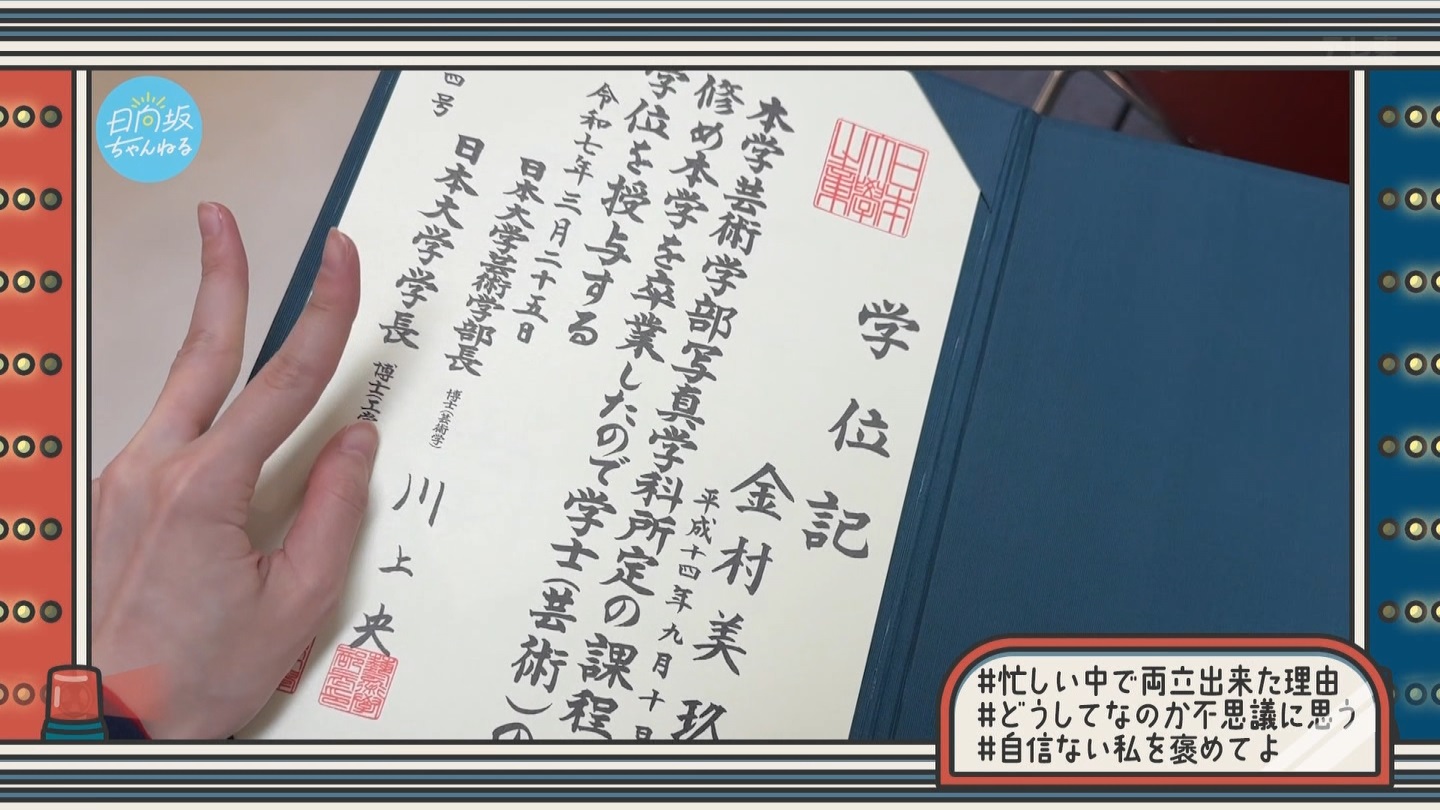 日向坂
ちゃんねる
学位記
金村美玖
平成十四年九月十日
本学芸術学部写真学科所定の課程
修め本学を卒業したので学士(芸術)の
学位を授与する
令和七年三月二十五日
日本大学芸術学部長 博士(芸術学) 川上央
日本大学学長 博士(工学
四号
#忙しい中で両立出来た理由
#どうしてなのか不思議に思う
#自信ない私を褒めてよ